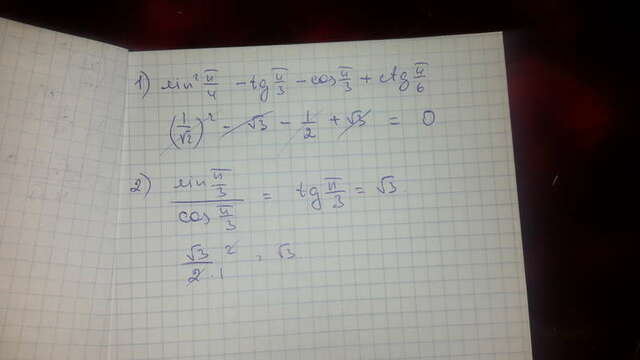 1) sin² π/4 - tg π/3 - cos π/3 + ctg π/6
(1/√2)² - √3 - 1/2 + √3 = 0
2) sin π/3 / cos π/3 = tg π/3 = √3
√3 · 2 / 2 · 1 = √3